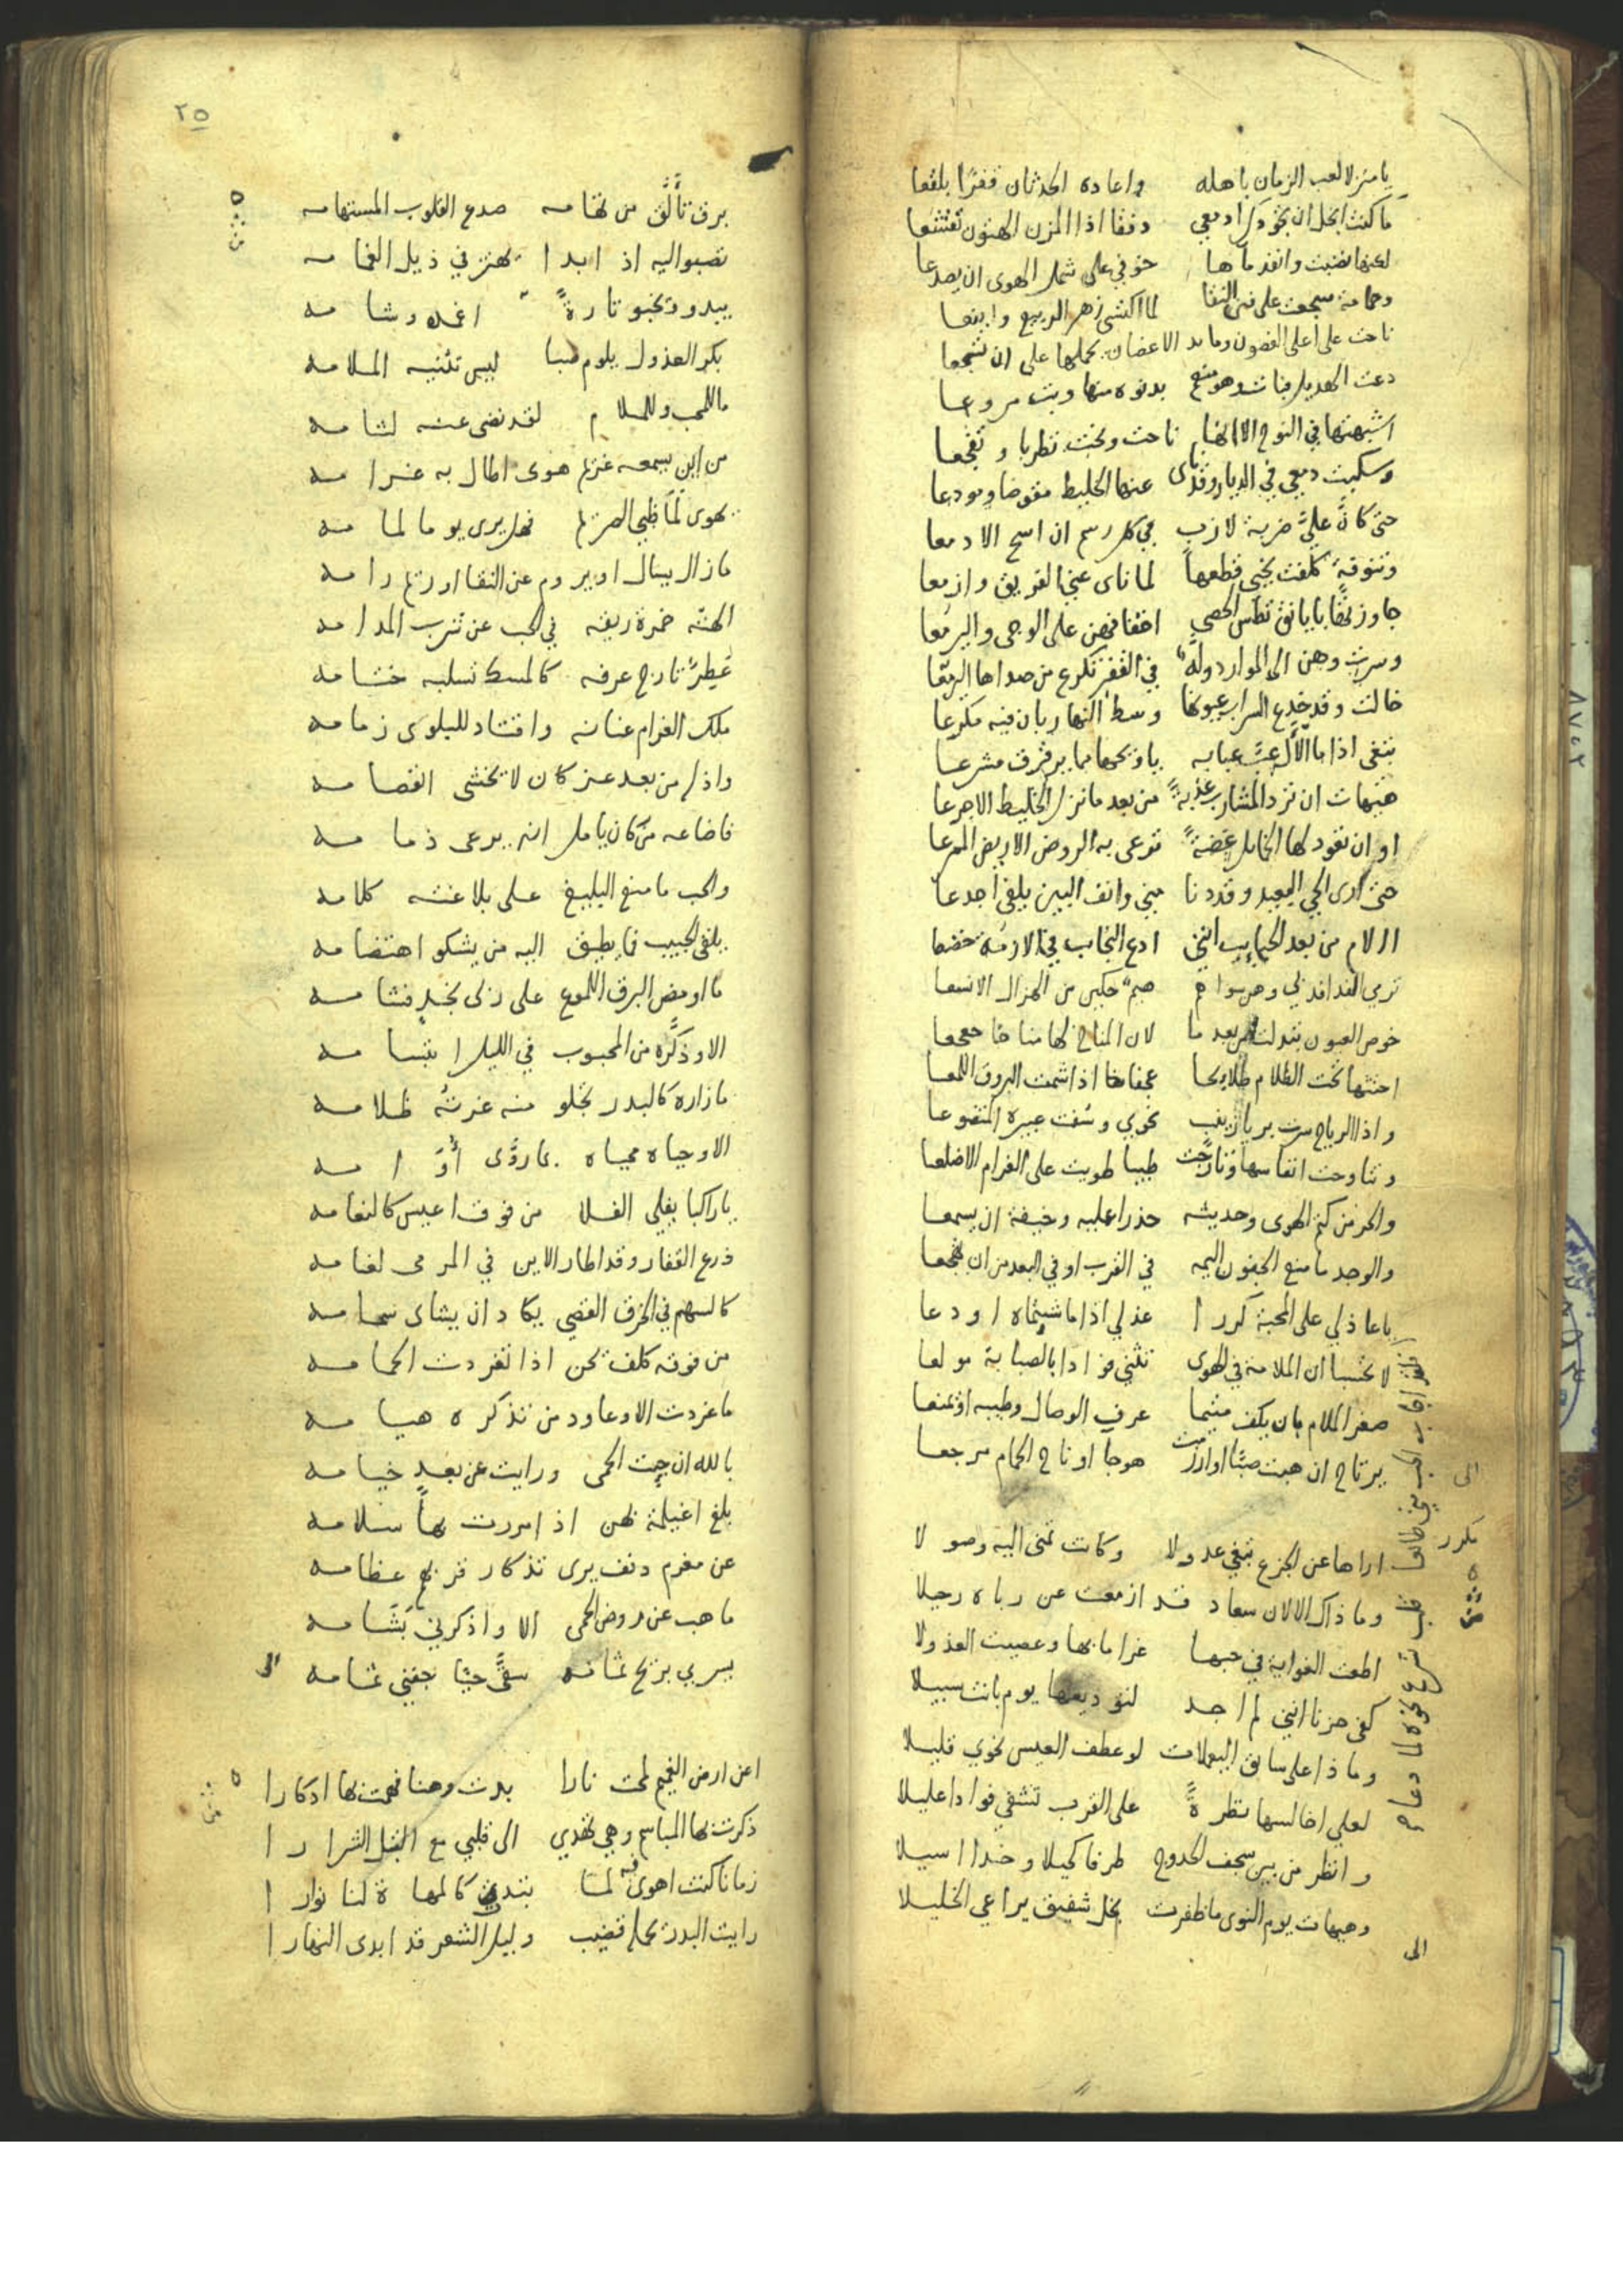 يا منزلا لعب الزمان باهله واعاده الحدثان قفرًا بلقعا
ما كنت ابخل ان تجود ادمعي دفقا اذا المزن الهتون تقشعا
لكنها نضبت وانفد ماها خوفي على شمل الهوى ان يصدعا
وحمامة سجعت على فنن النقا لما اكتسى زهر الربيع واينعا
ناحت على اعلى الغصون وما يد الاغصان يحملها على ان تسجعا
دعت الهديل فبات وهو بدنوه منها وبت مروعا
اشبهتها في النوح الا انها ناحت ونحت تطربا وتفجعا
وسكبت دمعي في الديار وقد ناى عنها الخليط مقوضا ومودعا
حتى كانَّ عليَّ ضربة لازب في كل رسم ان اسح الادمعا
وتنوفةٍ كلفت نجبى قطعها لما ناى عني الفريق وازمعا
جاوزتها بايانق تطس الحصى اخفافهن على الوجى واليرمعا
وسرت وهن الى الموارد ولّه في القفز تكرع من صداها اليرمعا
خالت وقد خدع السراب عيونها وسط النهار بان فيه مكرعا
تبغى اذا ما الآل عبَّ عبابه يا ويحها مما يرقرق مشرعا
هيهات ان ترد المشارب عذبةً من بعد ما نزل الخليط الاجرعا
او ان تعود لها الخمايل غضةً ترعى به الروض الاريض الممرعا
حتى ارى الحي البعيد وقد دنا مني وانف البين يلفى اجدعا
االام من بعد الحبايب انني ادع النجايب في الازمة خضعا
ترمي الفدافد لي وهن سواهم صبم حكين من الهزال الانسعا
خوص العيون تبدلت من بعد ما لان المناخ لها مناخا جعجعا
احثثها تحت الظلام طلايحا عجفا اذا شمت البروق اللمعا
واذا الرياح سرت بريا زينب نحوي وسفت عبيره المتضوعا
وتناوحت انفاسها وتارجت طيبا طويت على الغرام الاضلعا
والحر من كتم الهوى وحديثه حذرا عليه وخيفة ان يسمعا
والوجد ما منع الجفون اليمه في القرب او في البعد من ان تهجعا
يا عاذلي على المحبة كررا عذلي اذا ما شيتماه او دعا
لا تحسبا ان الملامة في الهوى تثني فوادا بالصبابة مولعا
صغر الملام بان يكف متيما عرف الوصال وطيبه او تمنعا
يرتاح ان هبت صبًا او ارزمت هوجا او ناح الحمام مرجعا
الى
مكرر
اراها عن الجزع تبغي عدولا وكانت تمنى اليه وصولا
وما ذاك الا لان سعاد قد ازمعت عن رباه رحيلا
اطعت الغواية في حبها غراما بها وعصيت العذولا
كفى حزنا انني لم اجد لتوديعها يوم بانت سبيلا
وماذا على سايق اليعملات لو عطف العيس نحوي قليلا
لعلي اخالسها نظرةً على القرب تشفي فوادا عليلا
وانظر من بين سجف الحدوج طرفا كحيلا وخدا اسيلا
وهيهات يوم النوى ما ظفرت بخل شفيق يراعي الخليلا
الى
٢٥
برق تألَّق من تهامه صدع القلوب المستهامه
تصبو اليه اذا بدا يهتز في ذيل الغمامه
يبدو ويخبو تارةً اغمده وشامه
بكر العذول يلوم صبا ليس تثنيه الملامه
ما للمحب وللملام لقد نضى عنه لثامه
من اين يسمعه غريم هوى اطال به غرامه
يهوى لمًا ظبي الصريم فهل يرى يوما لمامه
ما زال يسال او يروم عن النقا او ريم رامه
الهته خمرة ريقه في الحب عن شرب المدامه
عَطِرٌ تارج عرفه كالمسك تسلبه ختامه
ملك الغرام عنانه واقتاد للبلوى زمامه
واذل من بعد عز كان لا يخشى انفصامه
فاضاعه من كان يامل انه يرعى ذمامه
والحب ما منع البليغ على بلاغته كلامه
يلقى الحبيب فما يطيق اليه من يشكو اهتضامه
ما اومض البرق اللموع على ربى نجدٍ فشامه
الا وذكَّره من المحبوب في الليل ابتسامه
ما زاره كالبدر تجلو منه غرته ظلامه
الا وحياه محياه بما روَّى أُوَامه
يا راكبا يفلي الفلا من فوق اعيس كالنعامه
ذرع القفار وقد اطار الاين في المرمى لغامه
كالسهم في الخرق القصي يكاد ان يشاى سهامه
من فوقه كلف يحن اذا تغردت الحمامه
ما غردت الا وعاود من تذكره هيامه
بالله ان جيت الحمى ورايت عن بعدٍ خيامه
بلغ اغيلمة بهن اذا مررت بها سلامه
عن مغرم دنف يرى تذكار قربهم عظامه
ما هب عن روض الحمى الا واذكرني بَشَامه
يسري يرنح ثمامه سقَّى حيًا جفني ثمامه
الى
اعن ارض الغميم لمحت نارا بدت وهنا فهمت بها ادكارا
ذكرت بها المباسم وهي تهدي الى قلبي مع القبل الشرارا
زمانا كنت اهوى فيه لمتا بتدي كالمهاة لنا نوارا
رايت البدر يحمله قضيب وليل الشعر قد ابدى النهارا